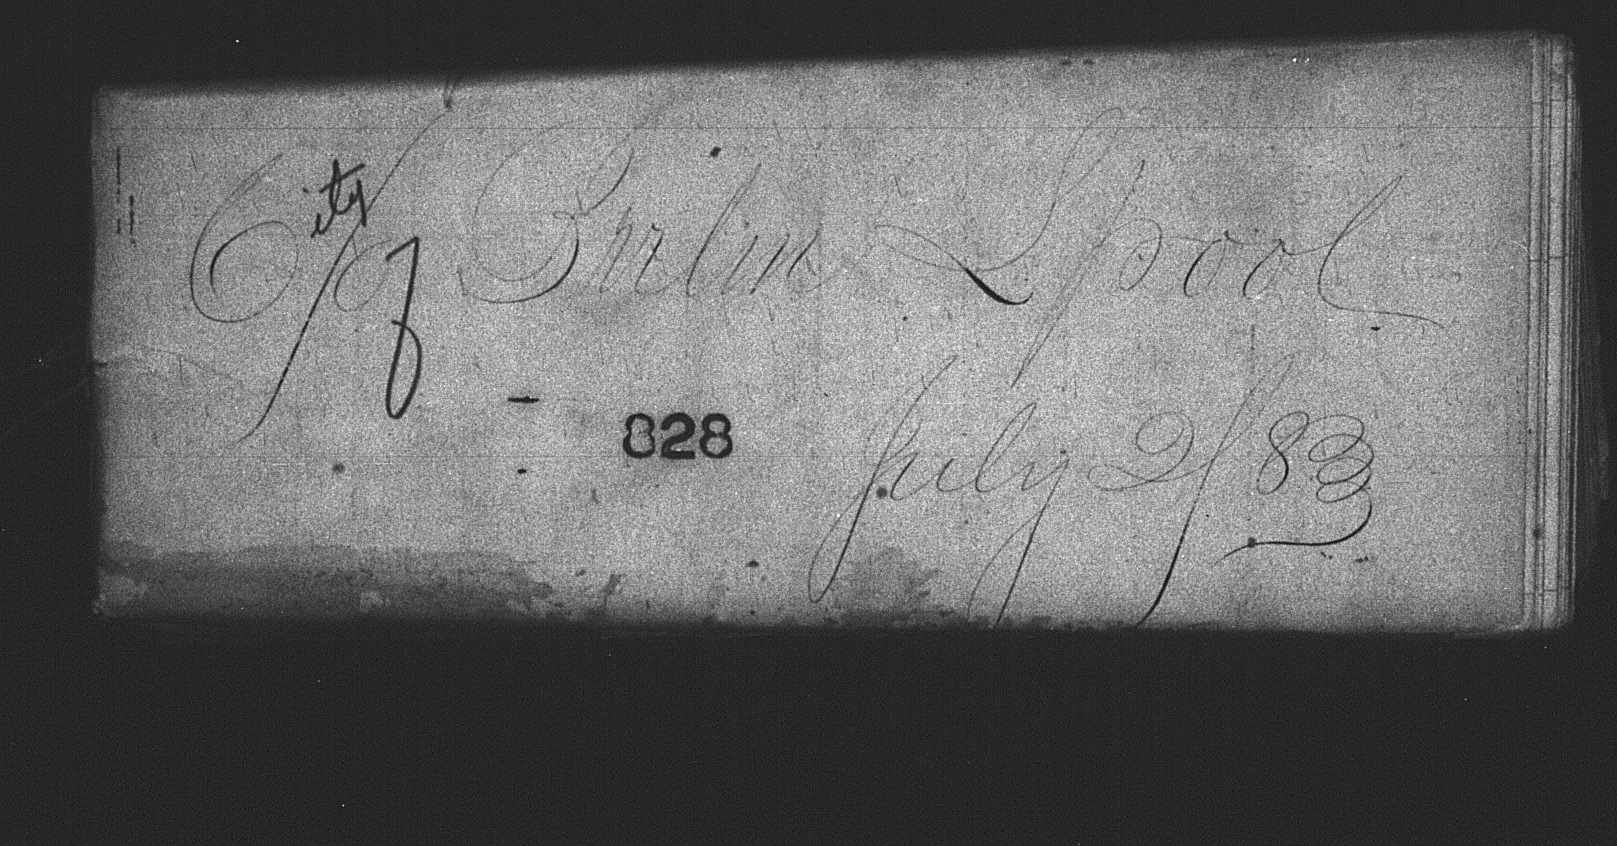 City of Berlin L'pool
828
July 2/83